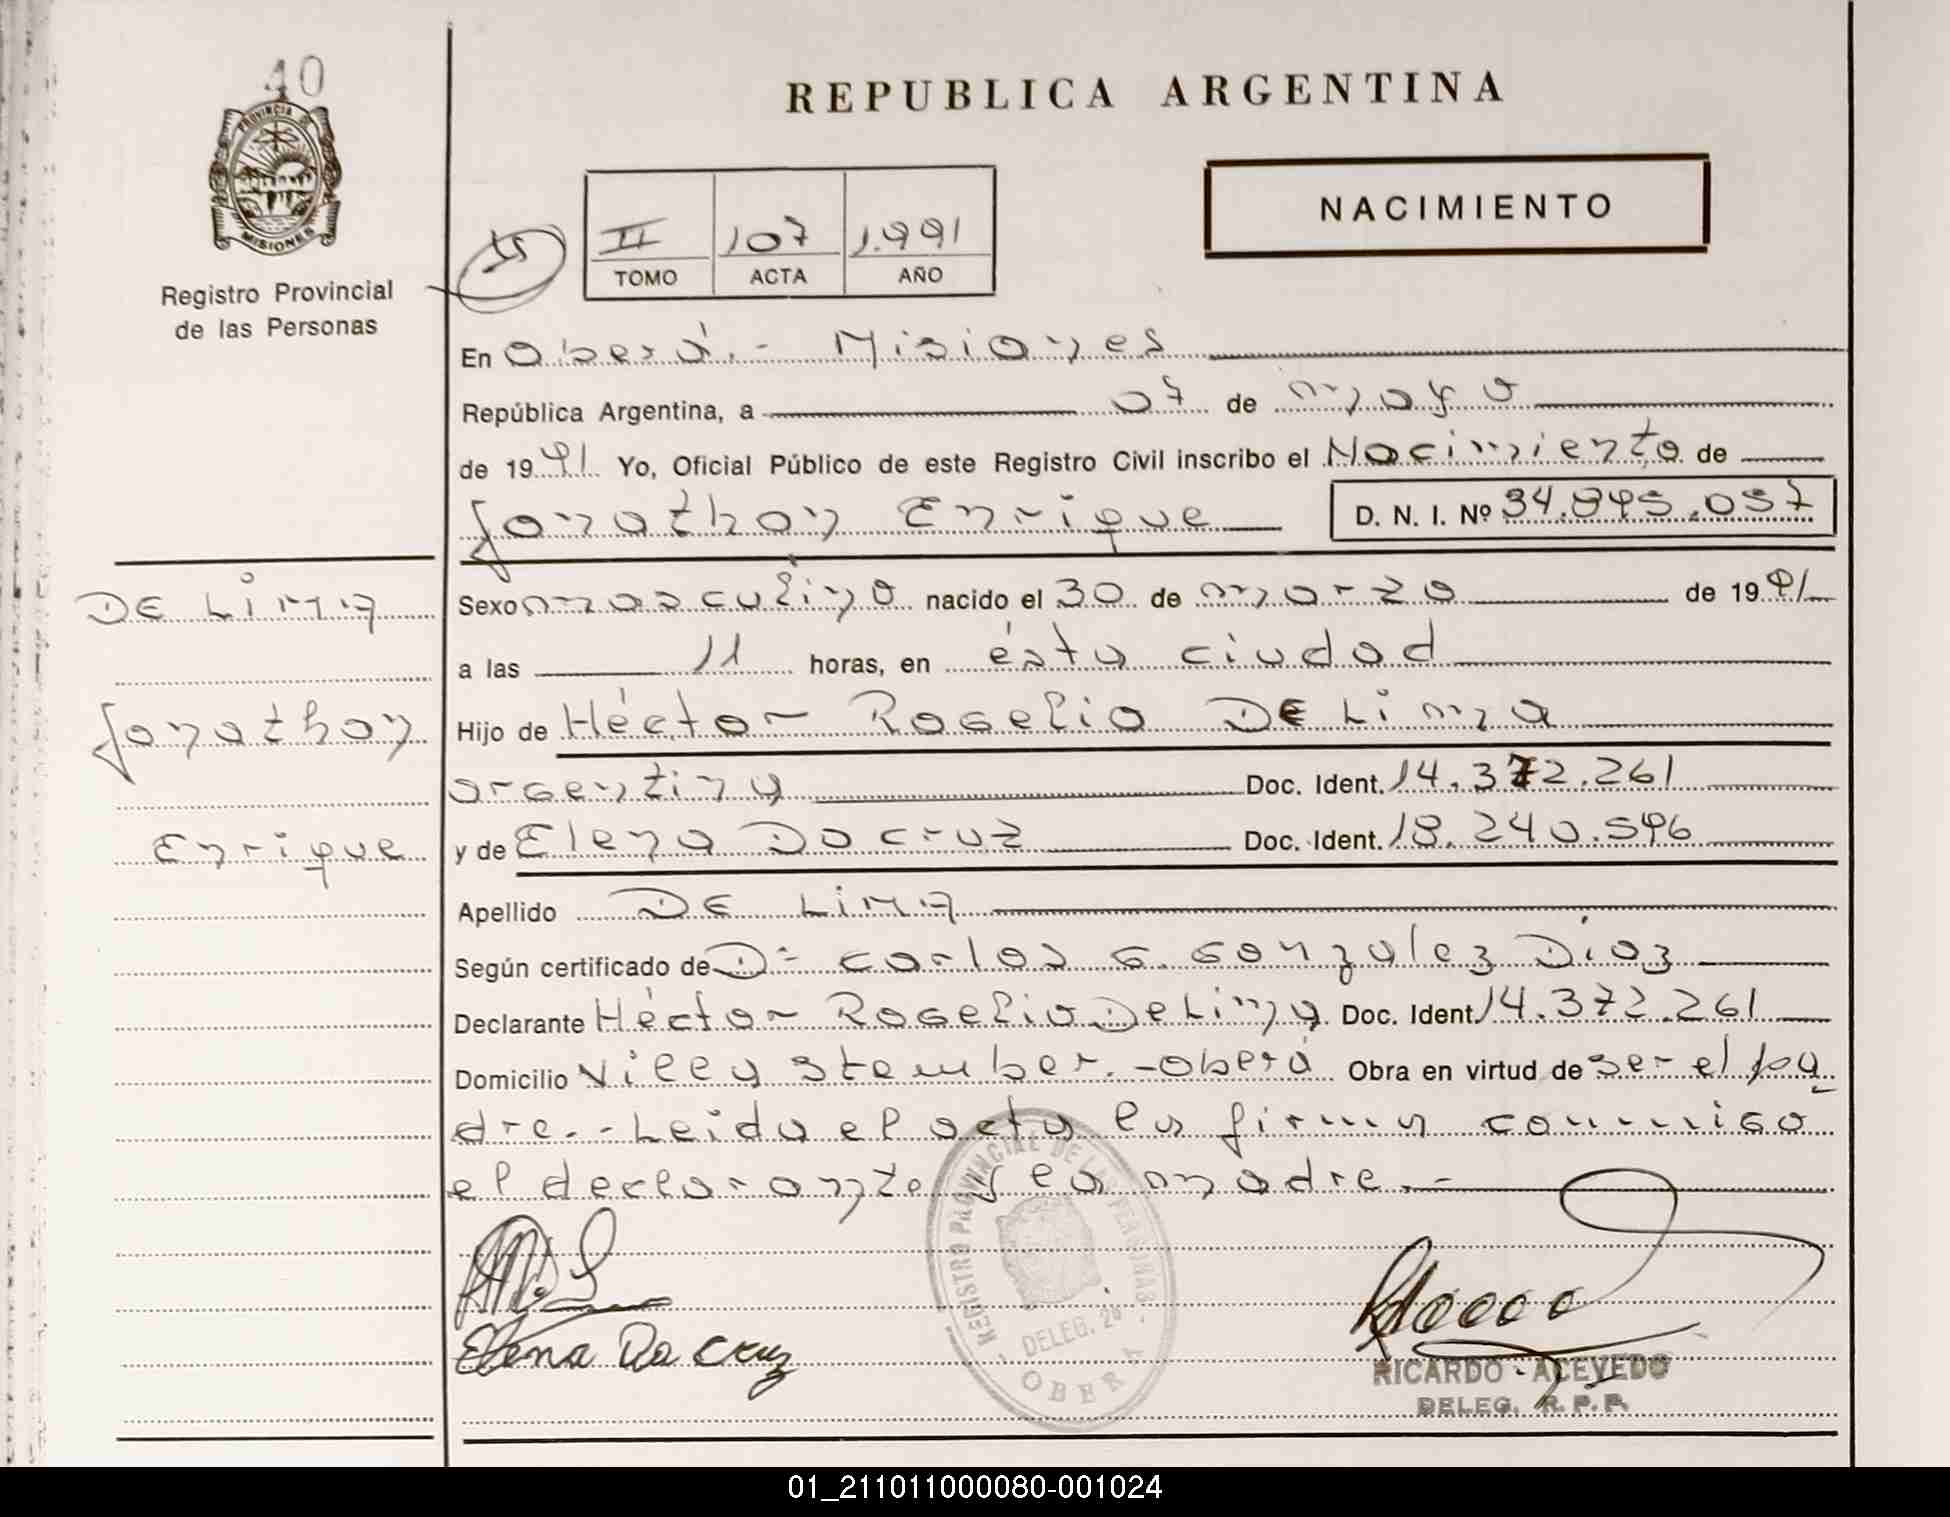 40
REPUBLICA ARGENTINA
PROVINCIA DE
MISIONES
Registro Provincial
de las Personas
II 107 1.991
TOMO ACTA AÑO
NACIMIENTO
En Oberá.- Misiones
República Argentina, a 07 de mayo
de 1991 Yo, Oficial Público de este Registro Civil inscribo el Nacimiento de
Jonathan Enrique D. N. I. Nº 34.895.057
DE LIMA
Jonathan
Enrique
Sexo masculino nacido el 30 de marzo de 1991
a las 11 horas, en ésta ciudad
Hijo de Héctor Rogelio DE Lima
argentina Doc. Ident. 14.372.261
y de Elena Da cruz Doc. Ident. 18.240.596
Apellido DE LIMA
Según certificado de Dr carlos G. Gonzalez Diaz
Declarante Héctor Rogelio De Lima Doc. Ident. 14.372.261
Domicilio Villa Stember.-Oberá Obra en virtud de ser el pa
dre.-Leida el acta la firma conmigo
el declarante y la madre.-
REGISTRO PROVINCIAL DE LAS PERSONAS
DELEG. 2ª
OBERA
Elena Da cruz
RICARDO ACEVEDO
DELEG. R. P. P.
01_211011000080-001024